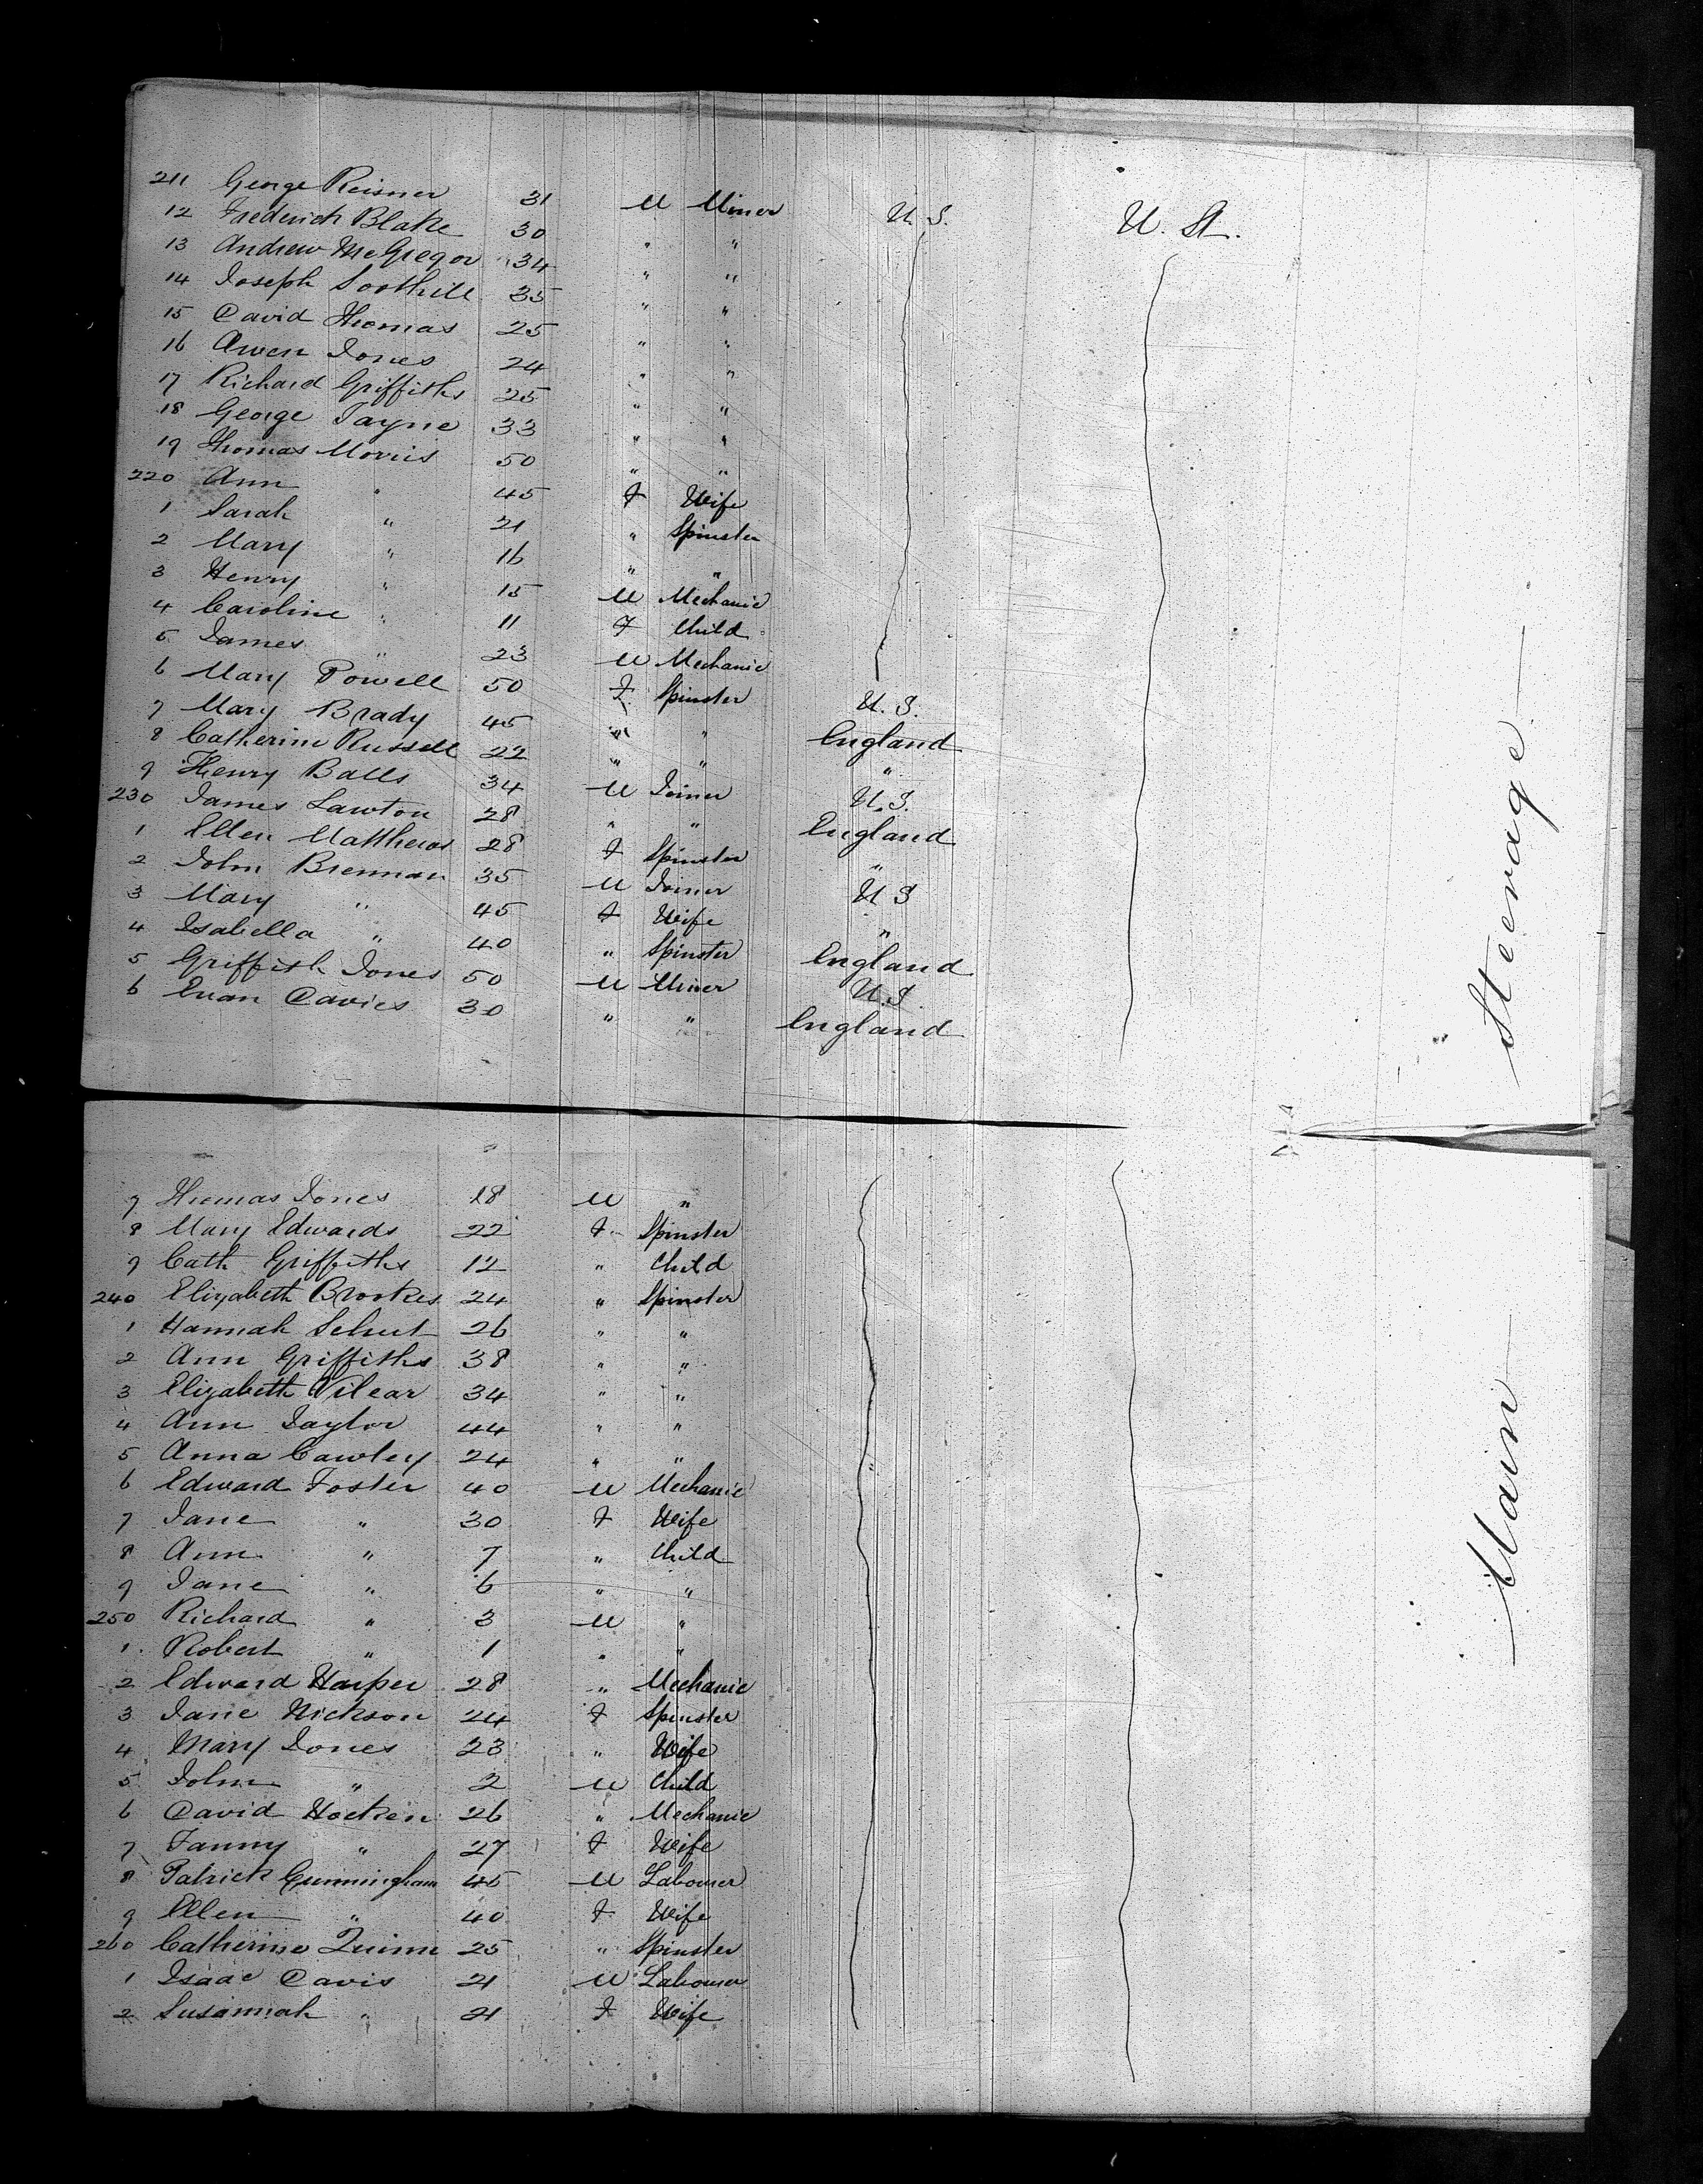 211 George Reisner 31 M Miner U.S. U. St.
12 Frederick Blake 30 " "
13 Andrew McGregor 34 " "
14 Joseph Soothill 35 " "
15 David Thomas 25 " "
16 Owen Jones 24 " "
17 Richard Griffiths 25 " "
18 George Jayne 33 " "
19 Thomas Morris 50 " "
220 Ann " 45 F Wife
1 Sarah " 21 " Spinster
2 Mary " 16 " "
3 Henry " 15 M Mechanic
4 Caroline " 11 F Child
5 James " 23 M Mechanic
6 Mary Powell 50 F Spinster U.S.
7 Mary Brady 45 " " England
8 Catherine Russell 22 " " "
9 Henry Balls 34 M Joiner U.S.
230 James Lawton 28 " " England
1 Ellen Matthews 28 F Spinster "
2 John Brennan 35 M Joiner U S
3 Mary " 45 F Wife "
4 Isabella " 40 " Spinster England
5 Griffith Jones 50 M Miner U.S.
6 Evan Davies 30 " " England
Steerage
7 Thomas Jones 18 M "
8 Mary Edwards 22 F Spinster
9 Cath Griffiths 12 " Child
240 Elizabeth Brookes 24 " Spinster
1 Hannah 26 " "
2 Ann Griffiths 38 " "
3 Elizabeth 34 " "
4 Ann Taylor 44 " "
5 Anna Cawley 24 " "
6 Edward Foster 40 M Mechanic
7 Jane " 30 F Wife
8 Ann " 7 " Child
9 Jane " 6 " "
250 Richard " 3 M "
1 Robert " 1 " "
2 Edward Harper 28 " Mechanic
3 Jane Nickson 24 F Spinster
4 Mary Jones 23 " Wife
5 John " 2 M Child
6 David Hocken 26 " Mechanic
7 Fanny " 27 F Wife
8 Patrick Cunningham 45 M Labourer
9 Ellen " 40 F Wife
260 Catherine Quinn 25 " Spinster
1 Isaac Davis 21 M Labourer
2 Susannah " 21 F Wife
Main